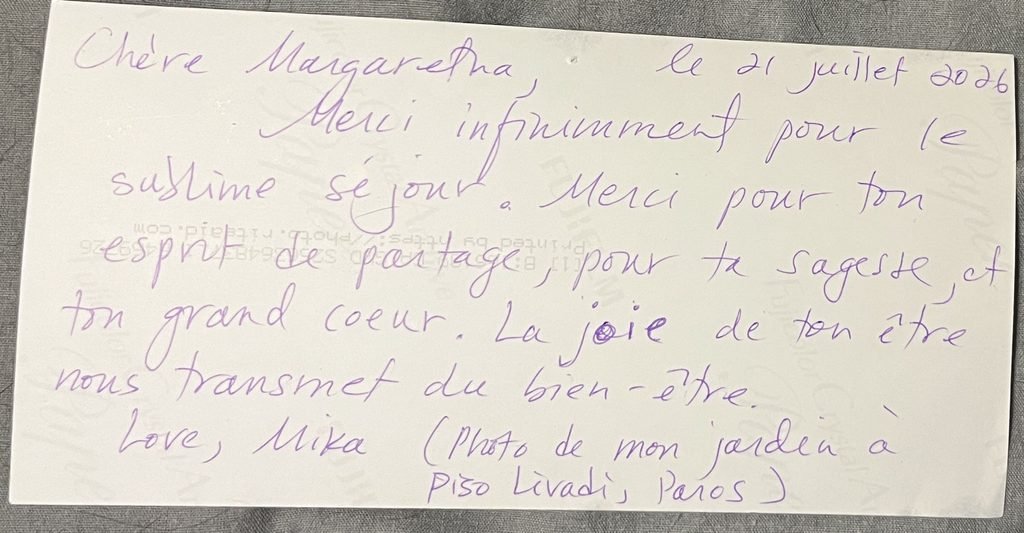 Chère Margaretha, le 21 juillet 2026
Merci infinimment pour le
sublime séjour. Merci pour ton
esprit de partage, pour ta sagesse, et
ton grand coeur. La joie de ton être
nous transmet du bien-être.
Love, Mika (Photo de mon jardin à
Piso Livadi, Paros)